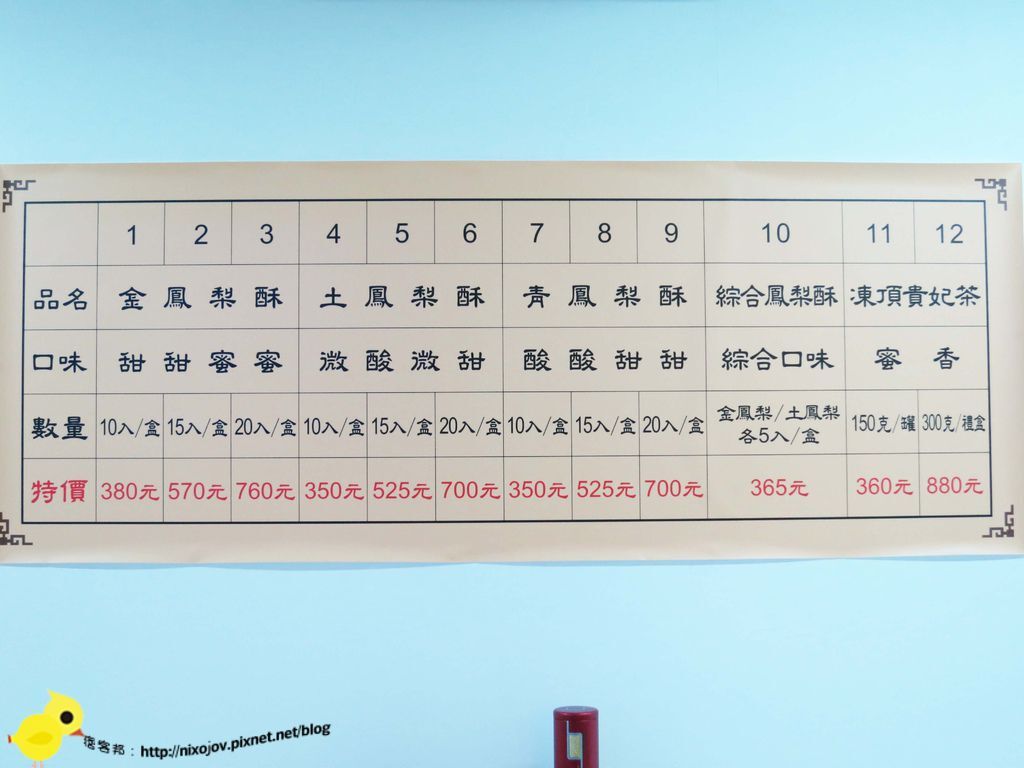 1 2 3 4 5 6 7 8 9 10 11 12
品名 金鳳梨酥 土鳳梨酥 青鳳梨酥 綜合鳳梨酥 凍頂貴妃茶
口味 甜甜蜜蜜 微酸微甜 酸酸甜甜 綜合口味 蜜香
數量 10入/盒 15入/盒 20入/盒 10入/盒 15入/盒 20入/盒 10入/盒 15入/盒 20入/盒 金鳳梨/土鳳梨 各5入/盒 150克/罐 300克/禮盒
特價 380元 570元 760元 350元 525元 700元 350元 525元 700元 365元 360元 880元
痞客邦：http://nixojov.pixnet.net/blog